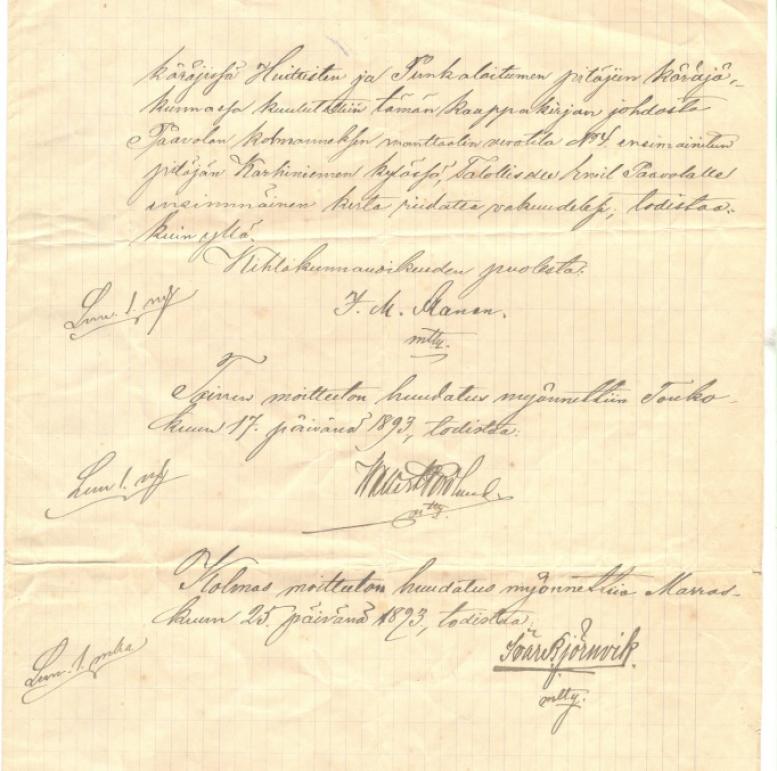 käräjissä Huittisten ja Punkalaitumen pitäjien käräjä-
kunnassa kuulutettiin tämän kaappakirjan johdosta
Paavolan kolmanneksen manttaalin verotila No 4. ensimainitun
pitäjän Karhiniemen kylässä, Talolliselle Emil Paavolalle
ensimmäinen kerta riidatta vakuudeksi; todistaa.
kuin yllä.
Kihlakunnanoikeuden puolesta:
Lun. 1. mk
J. M.
mtty.
Toinen moitteeton huudatus myönnettiin Touko-
kuun 17. päivänä 1893, todistaa:
Lun. 1. mk
mtty.
Kolmas moitteeton huudatus myönnettiin Marras-
kuun 25. päivänä 1893, todistaa:
Lun. 1. mka
Ivar Björnvik.
mtty.